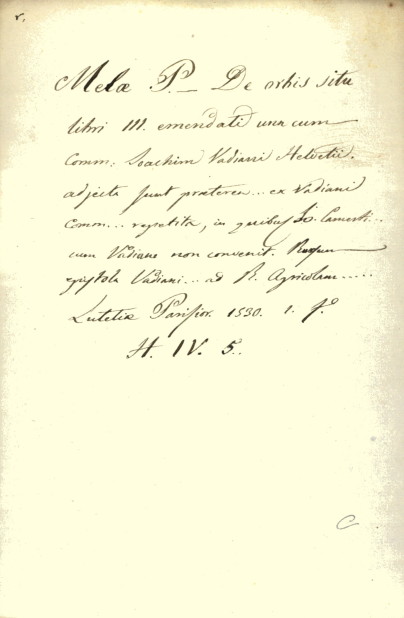 r.
Melæ P._ De orbis situ
libri III. emendati una cum
Comm: Joachim Vadiani Helvetii.
adjecta sunt præterea... ex Vadiani
Comm... repetita, in quibus Jo. Camerti...
cum Vadiano non convenit. Rursum
epistola Vadiani... ad R. Agricolam.....
Lutetiæ Parisior. 1530. 1. f.o
H. IV. 5..
C